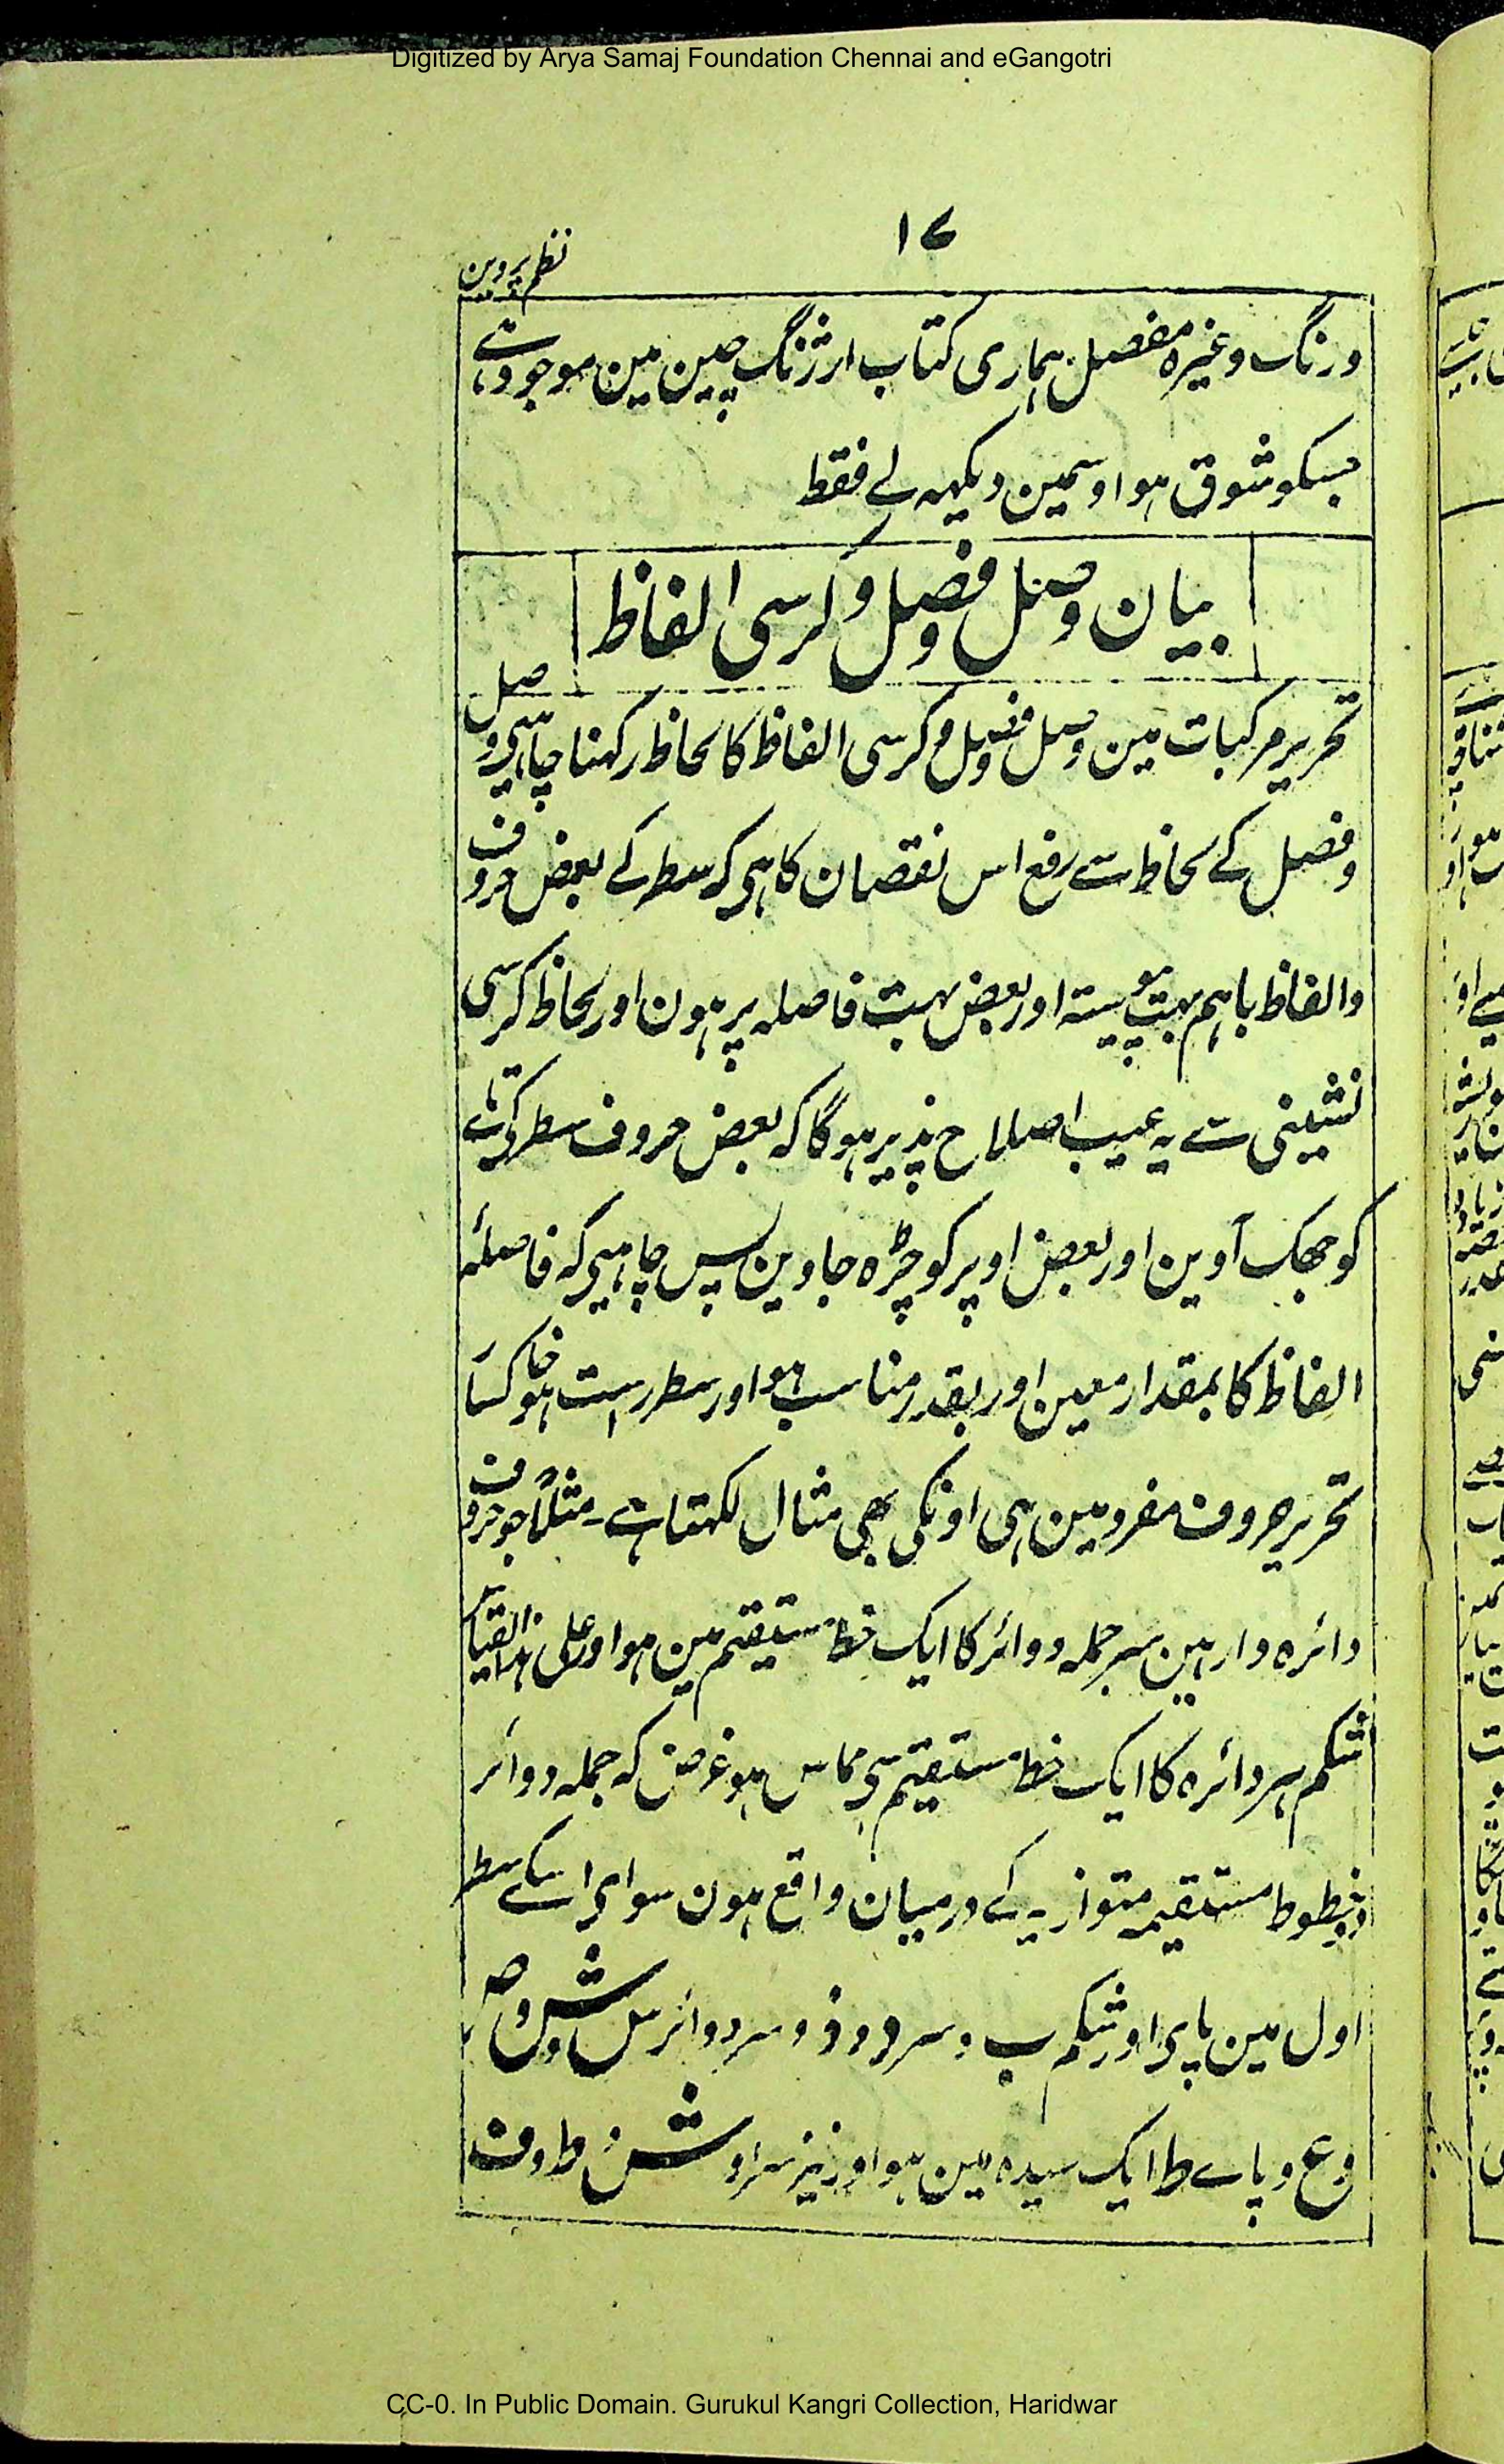 Digitized by Arya Samaj Foundation Chennai and eGangotri
۱۷
نظم پروین
ورنگ وغیرہ مفصل ہماری کتاب ارژنگ چین مین موجود ہے
جسکو شوق ہو اوسمین دیکہہ لے فقط
بیان وصل وفصل وکرسی الفاظ
تحریر مرکبات مین وصل وفصل وکرسی الفاظ کا لحاظ رکہنا چاہیی وصل
وفصل کے لحاظ سے رفع اس نقصان کا ہی کہ سطر کے بعض حروف
والفاظ باہم بہت پیوستہ اور بعض بہت فاصلہ پر ہون اور لحاظ کرسی
نشینی سے یہ عیب اصلاح پذیر ہوگا کہ بعض حروف سطر کے تہ
کو جھک آوین اور بعض اوپر کو چڑہ جاوین پس چاہیی کہ فاصلہٴ
الفاظ کا بمقدار معین اور بقدر مناسب ہو اور سطر راست ہو خاکسار
تحریر حروف مفرد مین ہی اونکی بھی مثال لکہتا ہے۔ مثلاً جو حروف
دائرہ دار ہین سر جملہ دوائر کا ایک خط مستقیم مین ہو اور علی ہذا القیاس
شکم ہر دائرہ کا ایک خط مستقیم سی مماس ہو غرض کہ جملہ دوائر
دو خطوط مستقیمہ متوازیہ کے درمیان واقع ہون سوای اسکے سطر
اول مین پای اور شکم ب و سر د و ذ و سر دوائر س و ش و ص
و ع و پاے ط ایک سیدہ مین ہو اور نیز سر ا و ش ط و ف
CC-0. In Public Domain. Gurukul Kangri Collection, Haridwar